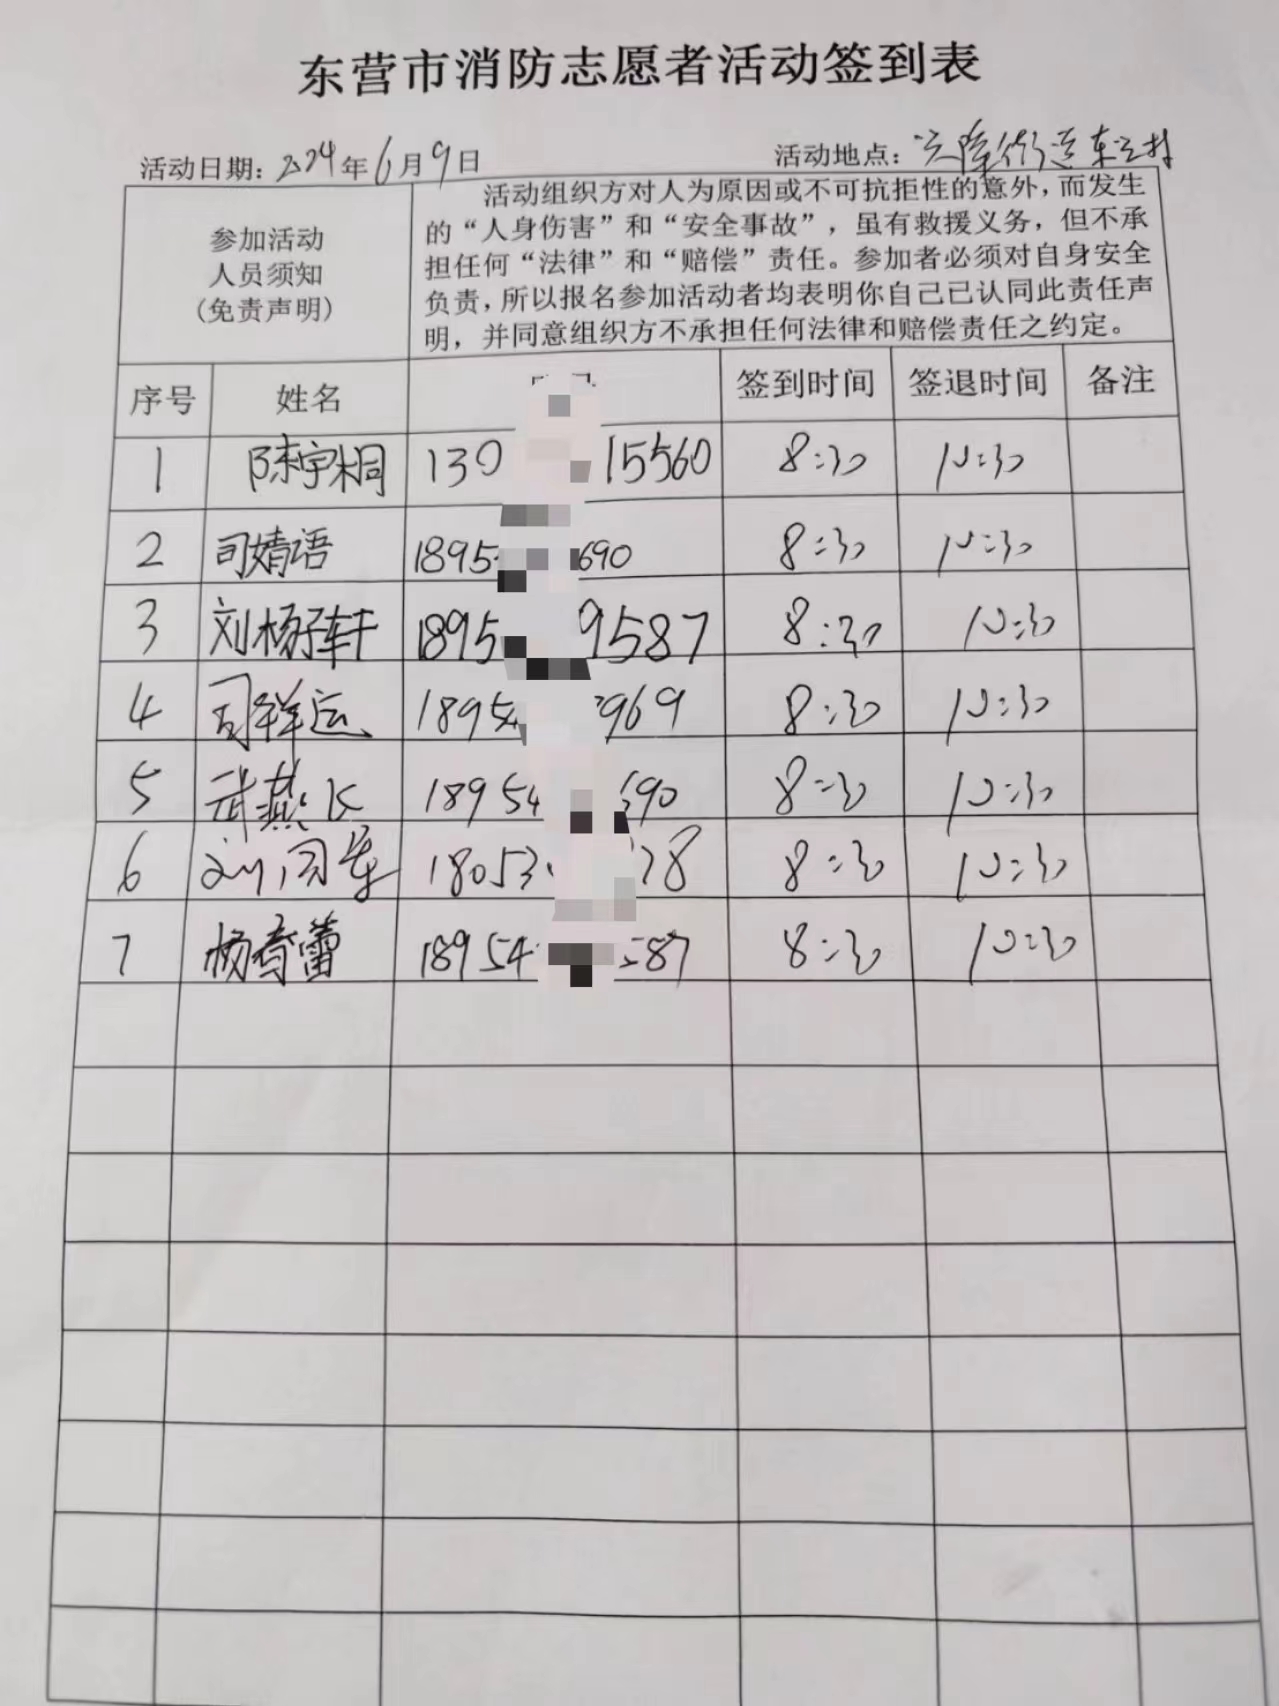 东营市消防志愿者活动签到表
活动日期：2024年6月9日 活动地点：街道东三村
参加活动
人员须知
(免责声明)
活动组织方对人为原因或不可抗拒性的意外，而发生
的“人身伤害”和“安全事故”，虽有救援义务，但不承
担任何“法律”和“赔偿”责任。参加者必须对自身安全
负责，所以报名参加活动者均表明你自己已认同此责任声
明，并同意组织方不承担任何法律和赔偿责任之约定。
序号 姓名 签到时间 签退时间 备注
1 陈宇桐 130 15560 8:30 10:30
2 司婧语 1895 690 8:30 10:30
3 刘杨子轩 1895 9587 8:30 10:30
4 司祥运 1895 969 8:30 10:30
5 武燕 18954 690 8:30 10:30
6 刘同军 18053 78 8:30 10:30
7 杨育蕾 18954 587 8:30 10:30